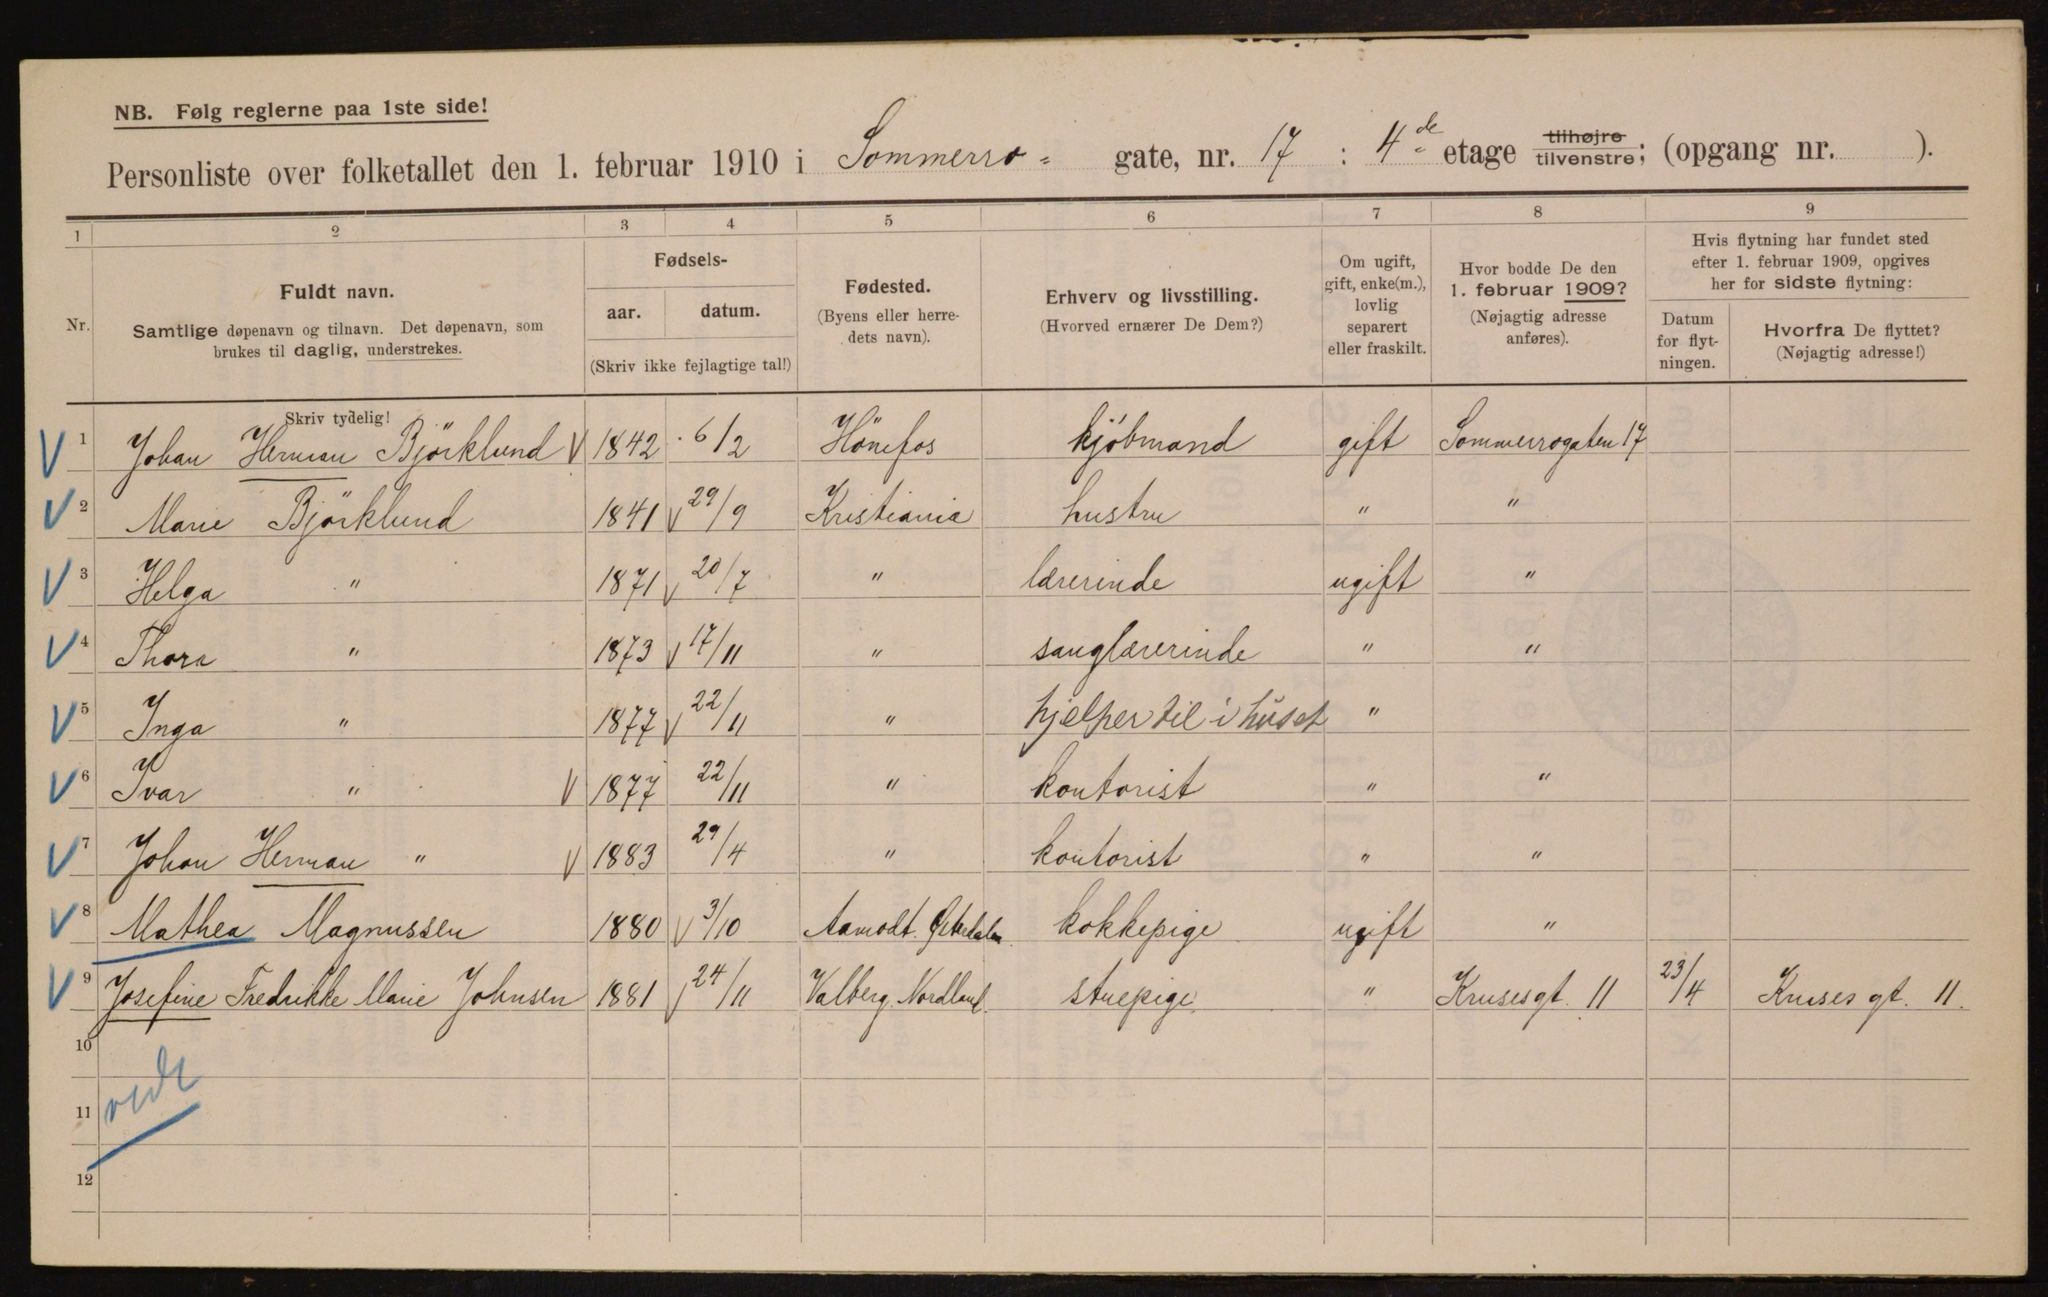 NB. Følg reglerne paa 1ste side!
Personliste over folketallet den 1. februar 1910 i Sommerro- gate, nr. 17 : 4de etage tilhøjre tilvenstre; (opgang nr. ).
1 2 3 4 5 6 7 8 9
Nr.
Fuldt navn.
Samtlige døpenavn og tilnavn. Det døpenavn, som
brukes til daglig, understrekes.
Skriv tydelig!
Fødsels-
aar. datum.
(Skriv ikke fejlagtige tal!)
Fødested.
(Byens eller herre-
dets navn).
Erhverv og livsstilling.
(Hvorved ernærer De Dem?)
Om ugift,
gift, enke(m.),
lovlig
separert
eller fraskilt.
Hvor bodde De den
1. februar 1909?
(Nøjagtig adresse
anføres).
Hvis flytning har fundet sted
efter 1. februar 1909, opgives
her for sidste flytning:
Datum
for flyt-
ningen.
Hvorfra De flyttet?
(Nøjagtig adresse!)
V 1 Johan Herman Björklund V 1842 6/2 Hönefos kjöbmand gift Sommerrogaten 17
V 2 Marie Björklund 1841 V 29/9 Kristiania hustru " "
V 3 Helga " 1871 V 20/7 " lærerinde ugift "
V 4 Thora " 1873 V 17/11 " sanglærerinde " "
V 5 Inga " 1877 V 22/11 " hjelper til i huset "
V 6 Ivar " V 1877 22/11 " kontorist " "
V 7 Johan Herman " V 1883 29/4 " kontorist " "
V 8 Mathea Magnussen 1880 V 3/10 Aamodt. Østerdalen kokkepige ugift "
V 9 Josefine Fredrikke Marie Johnsen 1881 V 24/11 Valberg. Nordland. stuepige. " Krusesgt. 11 23/4 Kruses gt. 11.
10
11
12